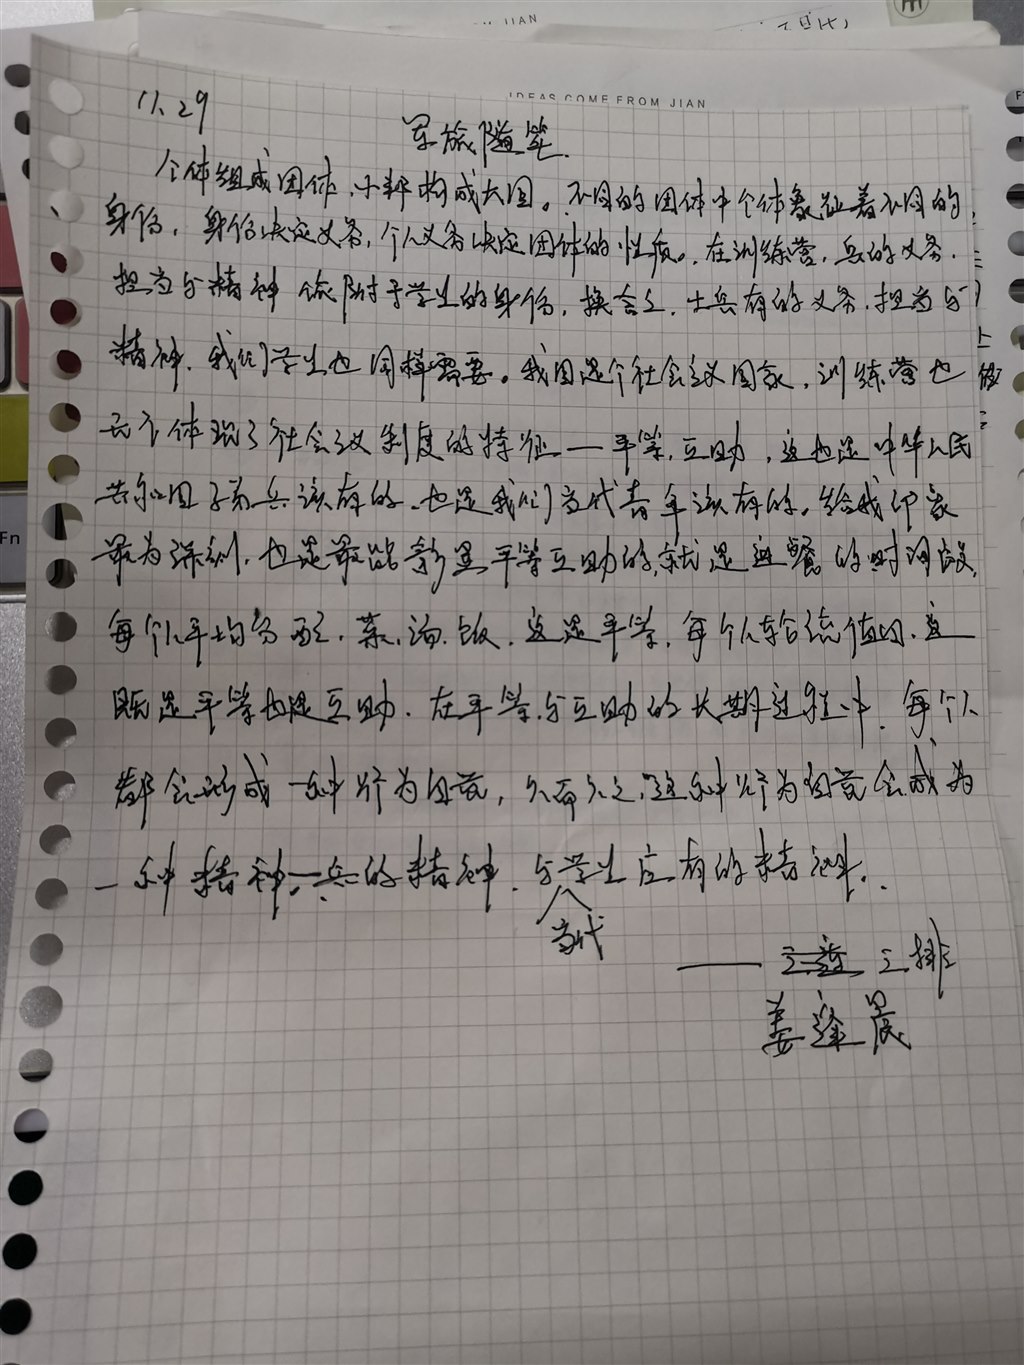 IDEAS COME FROM JIAN
11.29
军旅随笔
个体组成团体,小我构成大国。不同的团体中个体象征着不同的
身份,身份决定义务,个人义务决定团体的性质。在训练营,兵的义务,
担当与精神依附于学生的身份,换言之,士兵有的义务,担当与
精神,我们学生也同样需要。我国是个社会主义国家,训练营也
无不体现了社会主义制度的特征一平等,互助,这也是中华人民
共和国子弟兵该有的,也是我们当代青年该有的。给我印象
最为深刻,也是最能彰显平等互助的,就是进餐的时间段,
每个人平均分配,菜,汤,饭,这是平等,每个人轮流值日,这
既是平等也是互助。在平等与互助的长期过程中,每个人
都会形成一种行为自觉,久而久之,这种行为自觉会成为
一种精神,兵的精神,与当代学生应有的精神。
—— 三排
姜逢晨
Fn